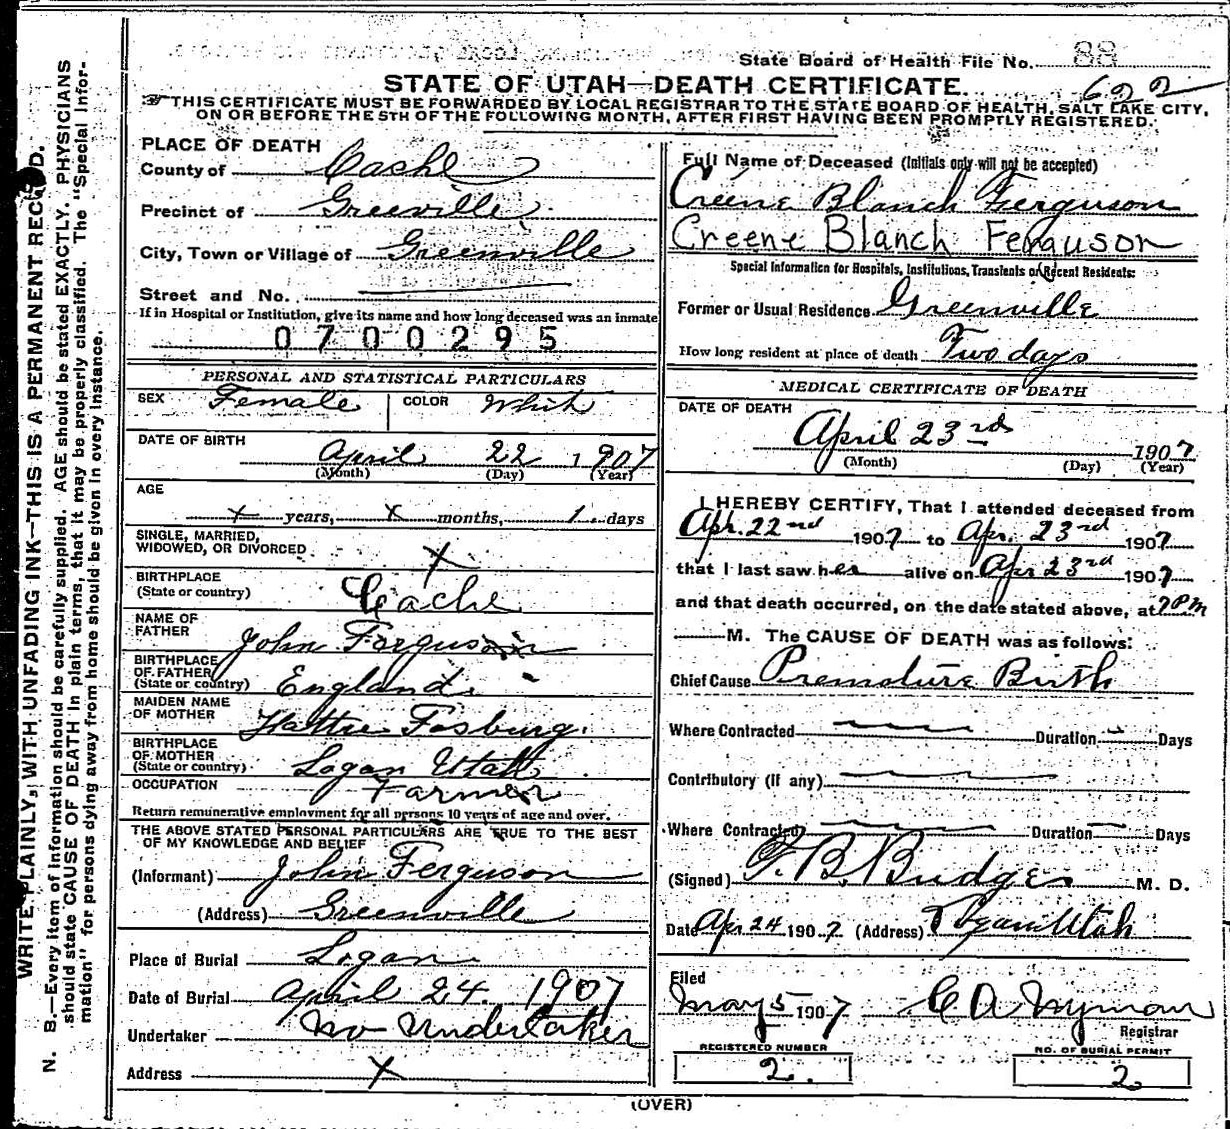 State Board of Health File No. 88
STATE OF UTAH—DEATH CERTIFICATE.
622
THIS CERTIFICATE MUST BE FORWARDED BY LOCAL REGISTRAR TO THE STATE BOARD OF HEALTH, SALT LAKE CITY,
ON OR BEFORE THE 5TH OF THE FOLLOWING MONTH, AFTER FIRST HAVING BEEN PROMPTLY REGISTERED.
WRITE PLAINLY, WITH UNFADING INK—THIS IS A PERMANENT RECORD.
N. B.—Every item of information should be carefully supplied. AGE should be stated EXACTLY. PHYSICIANS
should state CAUSE OF DEATH in plain terms, that it may be properly classified. The "Special Infor-
mation" for persons dying away from home should be given in every instance.
PLACE OF DEATH
County of Cache
Precinct of Greeville
City, Town or Village of Greenville
Street and No.
If in Hospital or Institution, give its name and how long deceased was an inmate
0700295
PERSONAL AND STATISTICAL PARTICULARS
SEX Female COLOR White
DATE OF BIRTH
April 22 1907
(Month) (Day) (Year)
AGE
x years, x months, 1 days
SINGLE, MARRIED,
WIDOWED, OR DIVORCED x
BIRTHPLACE
(State or country) Cache
NAME OF
FATHER John Ferguson
BIRTHPLACE
OF FATHER
(State or country) England
MAIDEN NAME
OF MOTHER Hattie Fosburg.
BIRTHPLACE
OF MOTHER
(State or country) Logan Utah
OCCUPATION Farmer
Return remunerative employment for all persons 10 years of age and over.
THE ABOVE STATED PERSONAL PARTICULARS ARE TRUE TO THE BEST
OF MY KNOWLEDGE AND BELIEF
(Informant) John Ferguson
(Address) Greenville
Place of Burial Logan
Date of Burial April 24. 1907
Undertaker No Undertaker
Address x
Full Name of Deceased (Initials only will not be accepted)
Creene Blanch Ferguson
Creene Blanch Ferguson
Special Information for Hospitals, Institutions, Transients or Recent Residents:
Former or Usual Residence Greenville
How long resident at place of death Two days
MEDICAL CERTIFICATE OF DEATH
DATE OF DEATH
April 23rd 1907
(Month) (Day) (Year)
I HEREBY CERTIFY, That I attended deceased from
Apr. 22nd 1907 to Apr. 23rd 1907
that I last saw her alive on Apr 23rd 1907
and that death occurred, on the date stated above, at 7 PM
M. The CAUSE OF DEATH was as follows:
Chief Cause Premature Birth
Where Contracted Duration Days
Contributory (if any)
Where Contracted Duration Days
(Signed) T. B. Budge M. D.
Date Apr 24 1907. (Address) Logan Utah
Filed
May 5 1907 C A Nyman
Registrar
REGISTERED NUMBER
2.
NO. OF BURIAL PERMIT
2
(OVER)